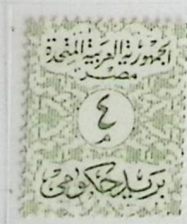 الجمهورية العربية المتحدة
مصر
٤
م
بريد حكومى